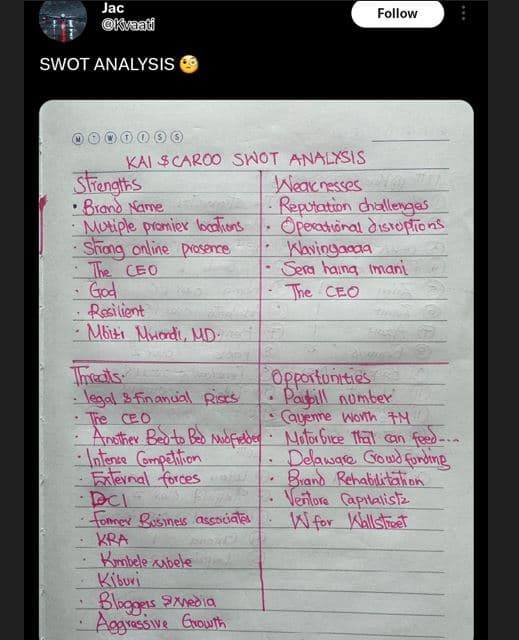 Jac
@Kvaati
Follow
SWOT ANALYSIS
M T W T F S S
KAI & CAROO SWOT ANALYSIS
Strengths
Brand Name
Mutiple promier locations
Strong online presence
The CEO
God
Resilient
Mbiti Mwondi, MD.
Weaknesses
Reputation challenges
Operational disroptions
Wavingaaaa
Sera haina imani
The CEO
Threats.
legal & Financial Risks
The CEO
Another Bed to Bed Midfielder
Intense Competition
External forces
DCI
Former Business associates
KRA
Kimbele mbele
Kiburi
Bloggers & media
Aggressive Growth
Opportunities
Paybill number
Cayenne worth 7M
Motorforce that can feed---
Delaware Crowdfunding
Brand Rehabilitation
Venture Capitalists
W for Wallstreet